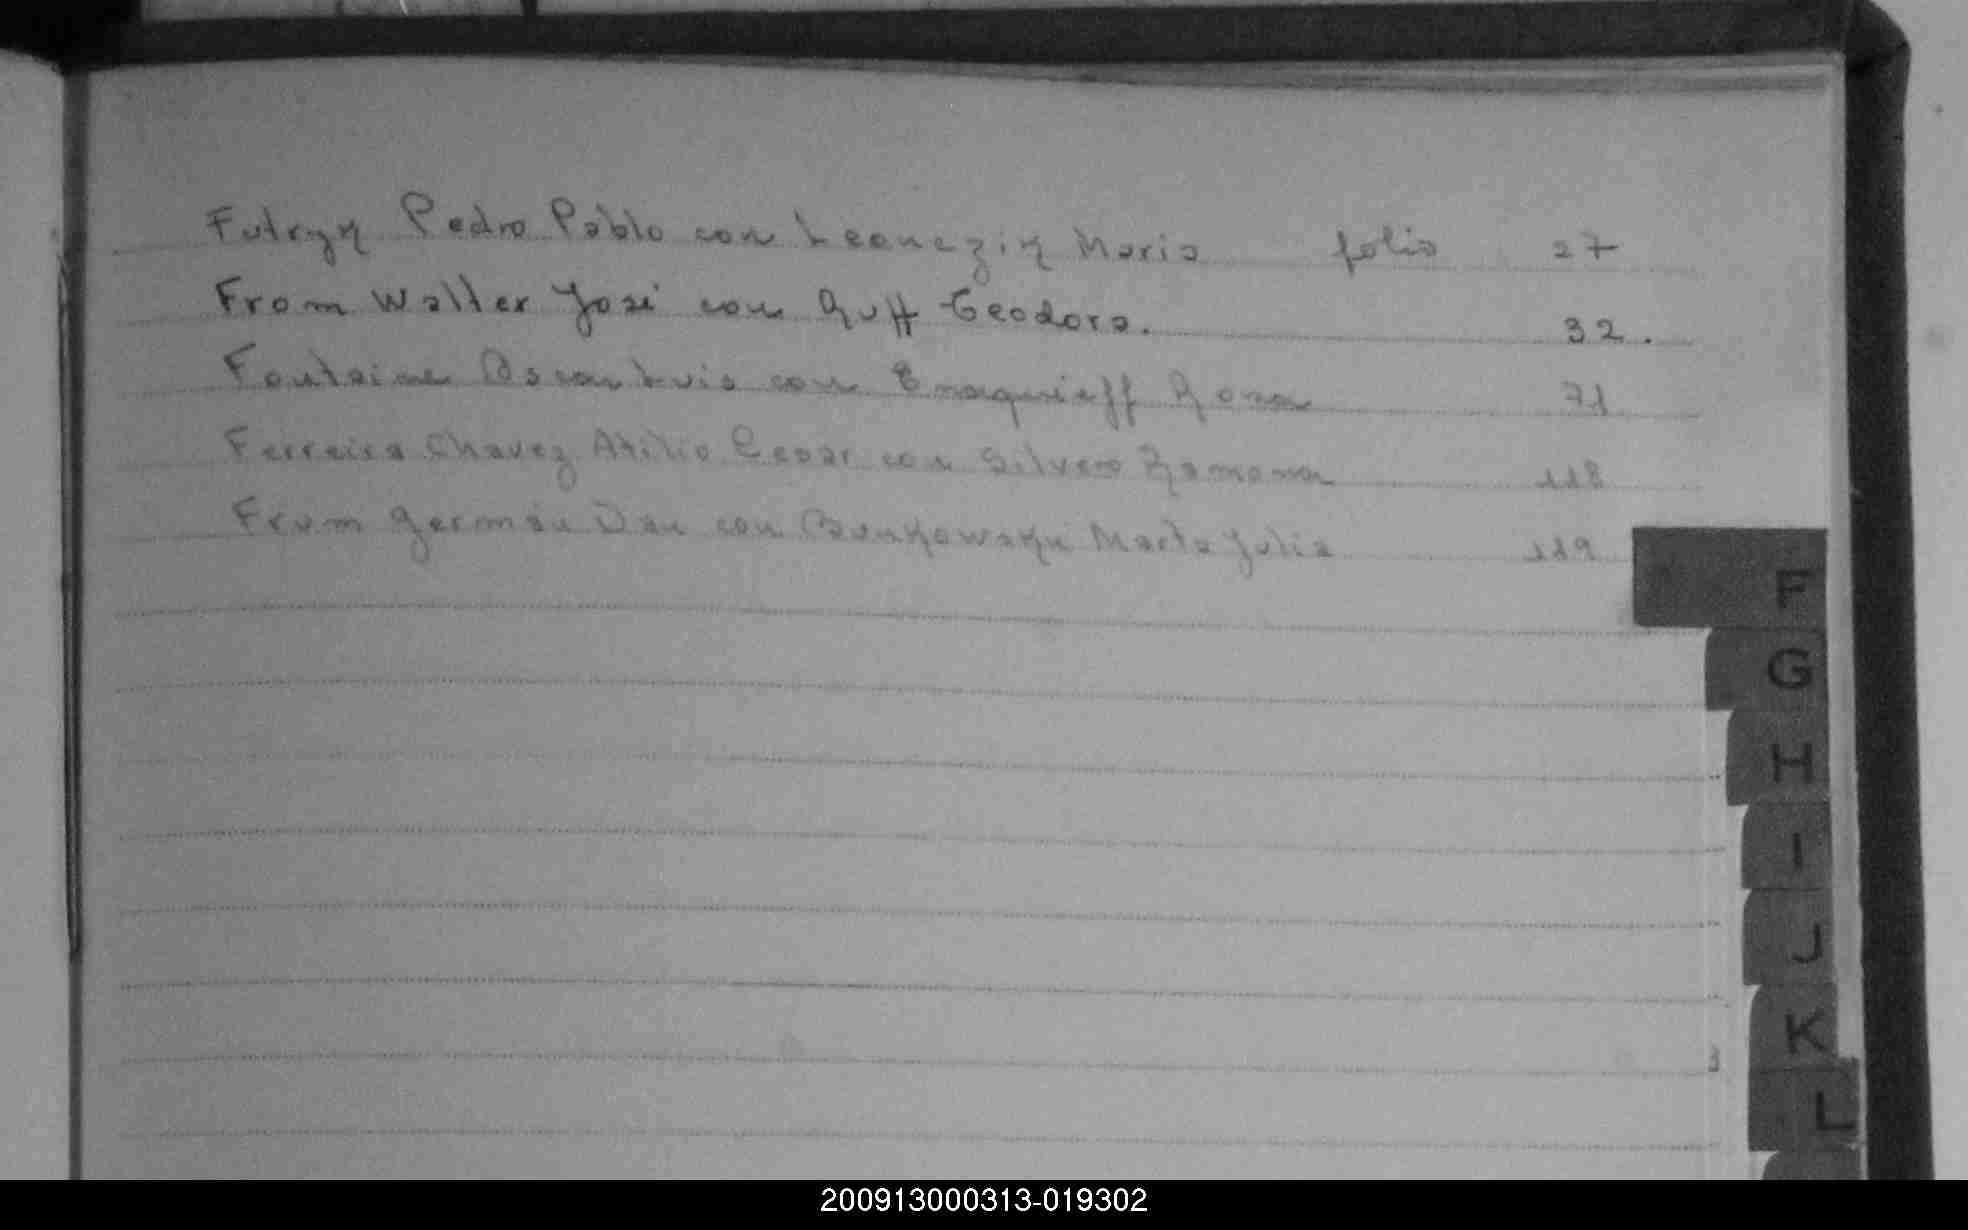 Futryk Pedro Pablo con Leonczik Maria folio 27
From Walter José con Ruff Teodora. 32.
Fontaine Oscar Luis con Rosa 71
Ferreira Chavez Atilio Cesar con Silvero Ramona 118
Frum Germán Dan con Marta Julia 119
F
G
H
I
J
K
L
200913000313-019302